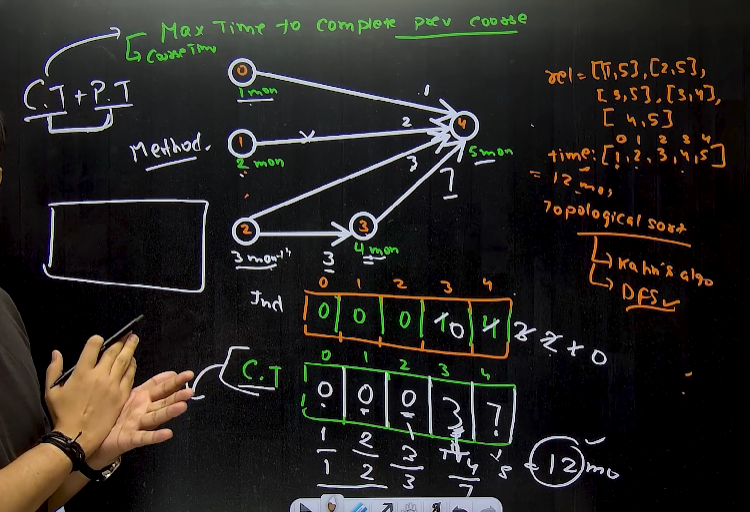 Max Time to complete prev course
Course Time
C.T + P.T
Method.
0
1 mon
1
2 mon
2
3 mon
3
4 mon
4
5 mon
1
2
3
7
3
rel = [[1,5], [2,5],
[3,5], [3,4],
[4,5]
0 1 2 3 4
time: [1, 2, 3, 4, 5]
= 12 mo,
Topological sort
Kahn's algo
DFS
Ind
0 1 2 3 4
0 0 0 1 0 4 3 2 1 0
C.T
0 1 2 3 4
0 0 0 3 7
1 2 3 4 5 = 12 mo
1 2 3 7